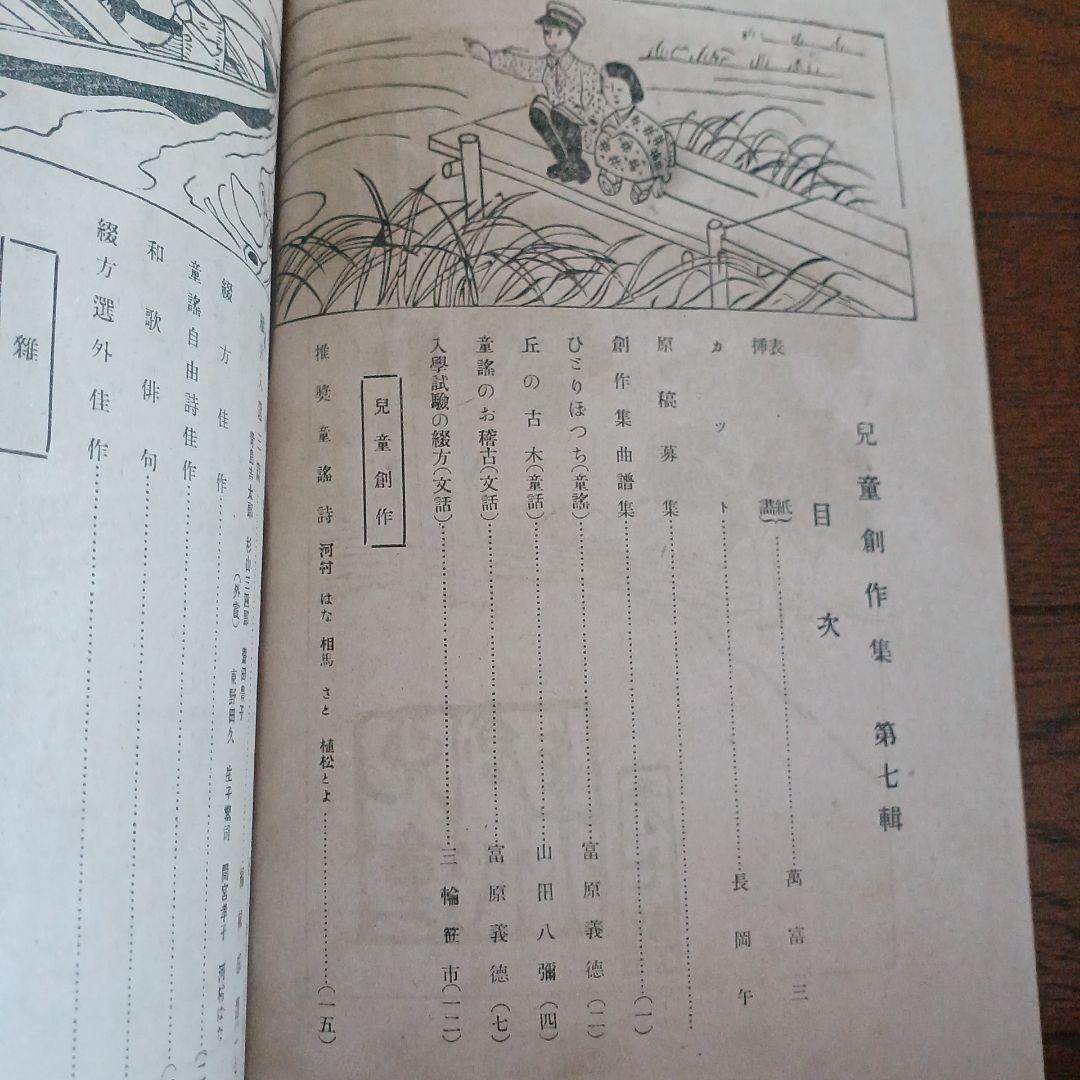 兒童創作集 第七輯
目次
表紙
挿畫……萬富三
カット……長岡午
原稿募集……
創作集曲譜集……(一)
ひとりぼつち(童謠)……富原義德(二)
丘の古木(童話)……山田八彌(四)
童謠のお稽古(文話)……富原義德(七)
入學試驗の綴方(文話)……三輪笹市(一二)
兒童創作
推奬童謠詩 河村はな 相馬さと 植松とよ……(一五)
綴方佳作……
童謠自由詩佳作……
和歌俳句……
綴方選外佳作……
雜